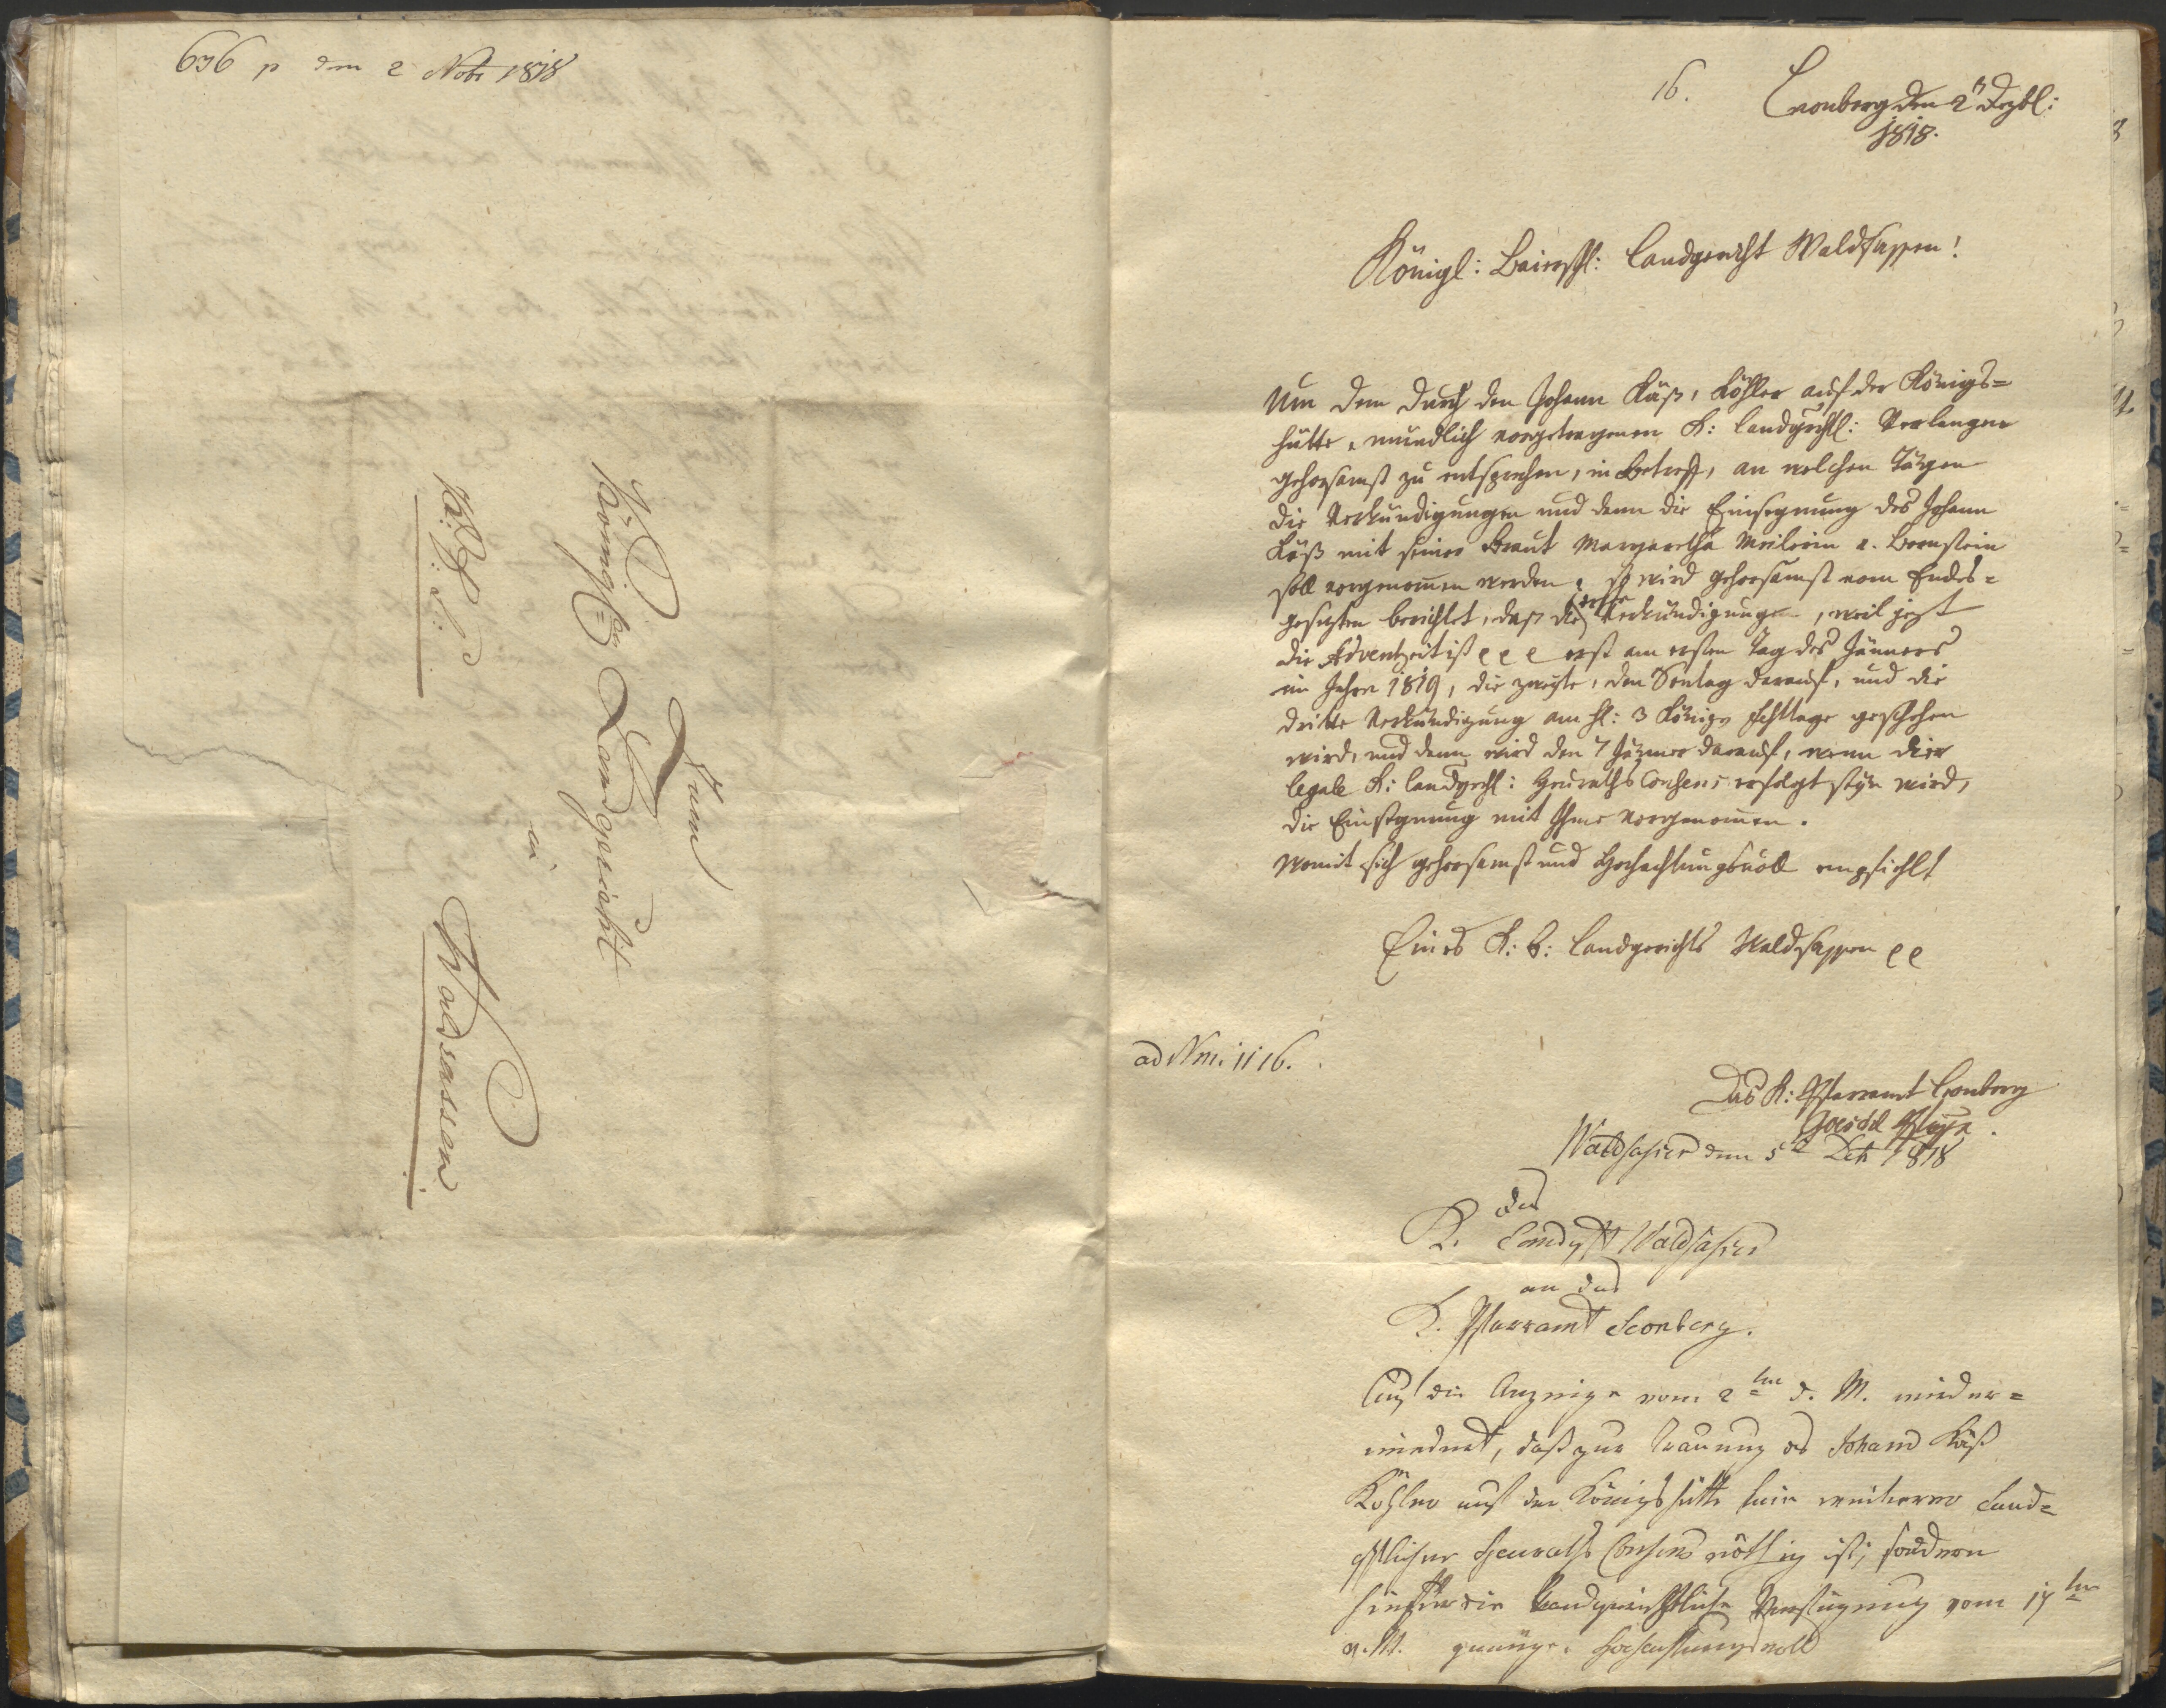 696 p den 2 Nobr 1818
Zum
Königlr Landgericht
in
Waldsassen
16.
Leonberg den 2n Dezbl:
1818.
Königl: Baierischl: Landgericht Waldsassen!
Um dem durch den Johann Käß, Köhler auf der Königs=
hütte, mündlich vorgetragenen K: landgrichtl: Verlangen
gehorsamst zu entsprechen, in Betreff, an welchen Tägen
die Verkündigungen und dann die Einsegnung des Johann
Käß mit seiner Braut Margaretha Meilerin v. Bernstein
soll vorgenommen werden, so wird gehorsamst vom Endes=
gesezten berichtet, daß die erste Verkündigungen, weil jezt
die Adventzeit ist erst am ersten Tag des Jänners
im Jahre 1819, die zweyte, den Sontag darauf, und die
dritte Verkündigung am hl: 3 Königs Festtage geschehen
wird, und dann wird den 7 Jäner darauf, wenn der
legale K: landgrchl: Heuraths Consens erfolgt seyn wird,
die Einsegnung mit Ihme vorgenommen.
womit sich gehorsamst und Hochachtungsvoll empfiehlt
Eines K: B: Landgerichts Waldsassen
ad Nm. 1116.
Das K: Pfarramt Leonberg
Waldsassen den 5t Dez 1818
Das
K. Landgcht Waldsassen
an das
K. Pfarramt Leonberg.
Auf die Anzeige vom 2ten d. M. wieder=
, daß zur Trauung des Johann Käß
Köhler auf der Königshütte kein weiterer Land=
gchtlicher Heuraths Consens nöthig ist, sondern
hiefür die Landgerichtliche Verfügung vom 17ten
v. M. genüge. Hochachtungsvoll